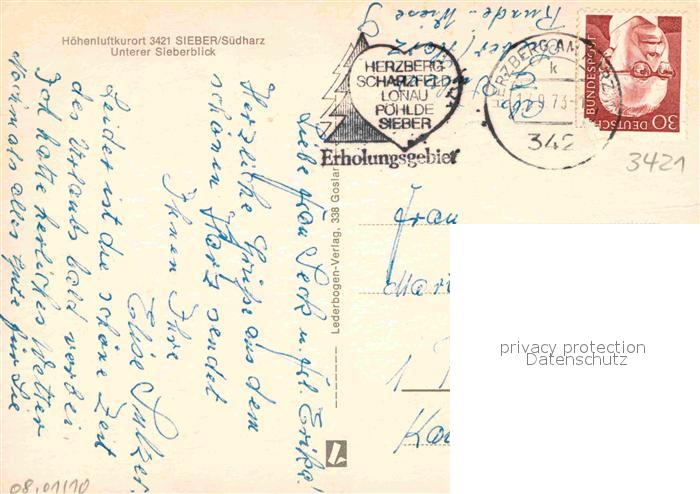 Höhenluftkurort 3421 SIEBER/Südharz
Unterer Sieberblick
HERZBERG
SCHARZFELD
LONAU
PÖHLDE
SIEBER
Erholungsgebiet
HERZBERG AM HARZ
k
9.73-
342
DEUTSCHE BUNDESPOST
30
3421
Liebe Frau Seck u. Frl. Erika!
Herzliche Grüße aus dem
schönen Harz sendet
Ihnen Ihre
Elise Sulzer.
Leider ist die schöne Zeit
des Urlaubs bald vorbei.
Ich hatte herrliches Wetter
Nochmals alles gute für Sie
Lederbogen-Verlag, 338 Goslar
Frau
Mari
1
Ka
privacy protection
Datenschutz
08.01/10